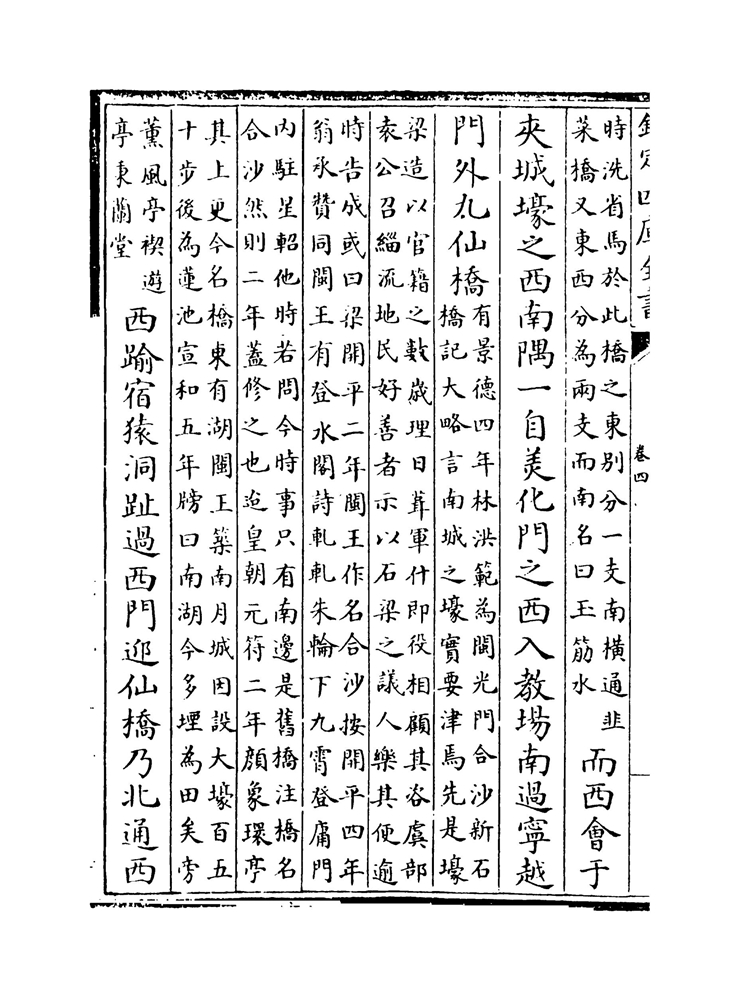 欽定四庫全書
卷四
時洗省馬於此橋之東別分一支南橫通韭
菜橋又東西分為兩支而南名曰玉筋水
而西會于
夾城壕之西南隅一自美化門之西入教場南過寧越
門外九仙橋
有景德四年林洪範為閩光門合沙新石
橋記大略言南城之壕實要津焉先是壕
梁造以官籍之數歲理日葺軍什即役相顧其咨虞部
袁公召緇流地民好善者示以石梁之議人樂其便逾
時告成或曰梁開平二年閩王作名合沙按開平四年
翁承贊同閩王有登水閣詩軋軋朱輪下九霄登庸門
内駐星軺他時若問今時事只有南邊是舊橋注橋名
合沙然則二年蓋修之也迨皇朝元符二年顔象環亭
其上更今名橋東有湖閩王築南月城因設大壕百五
十步後為蓮池宣和五年牓曰南湖今多堙為田矣旁
薰風亭禊遊
亭秉蘭堂
西踰宿猿洞趾過西門迎仙橋乃北通西